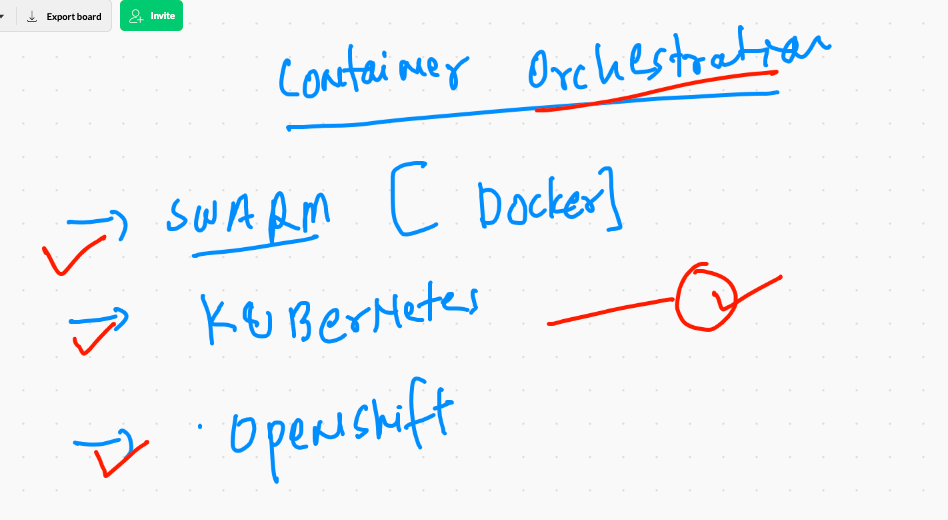 Export board Invite
Container Orchestration
SWARM [ Docker]
KUBerNetes
Openshift